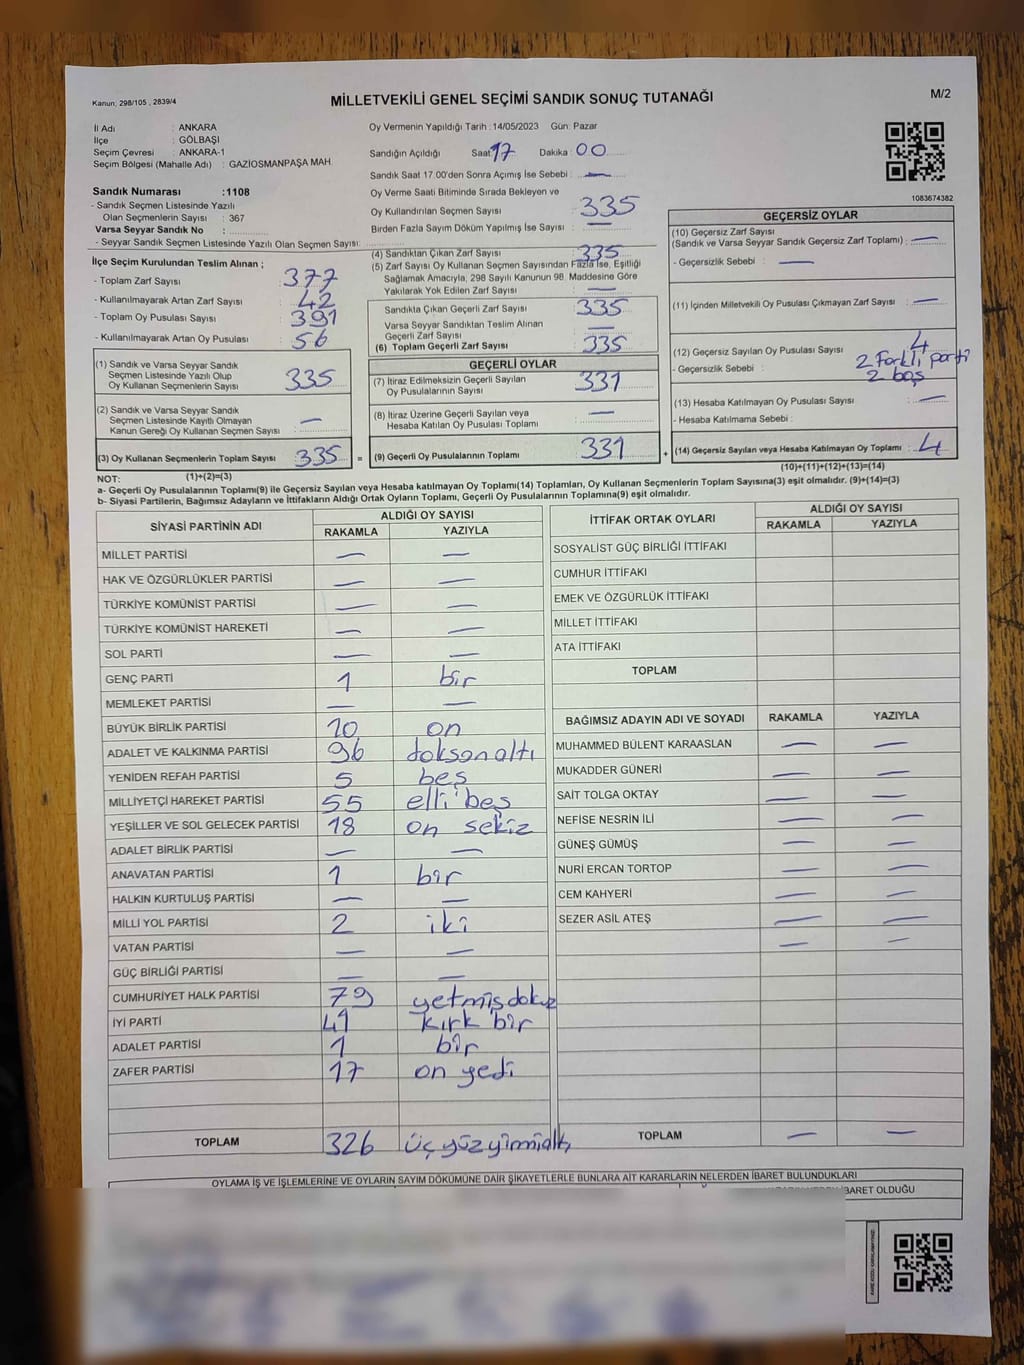 Kanun; 298/105 , 2839/4
MİLLETVEKİLİ GENEL SEÇİMİ SANDIK SONUÇ TUTANAĞI
M/2
İl Adı : ANKARA
İlçe : GÖLBAŞI
Seçim Çevresi : ANKARA-1
Seçim Bölgesi (Mahalle Adı) : GAZİOSMANPAŞA MAH.
Sandık Numarası :1108
- Sandık Seçmen Listesinde Yazılı
Olan Seçmenlerin Sayısı : 367
Varsa Seyyar Sandık No :
- Seyyar Sandık Seçmen Listesinde Yazılı Olan Seçmen Sayısı:
İlçe Seçim Kurulundan Teslim Alınan ;
- Toplam Zarf Sayısı : 377
- Kullanılmayarak Artan Zarf Sayısı : 42
- Toplam Oy Pusulası Sayısı : 391
- Kullanılmayarak Artan Oy Pusulası : 56
(1) Sandık ve Varsa Seyyar Sandık
Seçmen Listesinde Yazılı Olup
Oy Kullanan Seçmenlerin Sayısı : 335
(2) Sandık ve Varsa Seyyar Sandık
Seçmen Listesinde Kayıtlı Olmayan
Kanun Gereği Oy Kullanan Seçmen Sayısı : —
(3) Oy Kullanan Seçmenlerin Toplam Sayısı : 335 =
Oy Vermenin Yapıldığı Tarih : 14/05/2023 Gün: Pazar
Sandığın Açıldığı Saat: 17 Dakika : 00
Sandık Saat 17.00'den Sonra Açımış İse Sebebi : —
Oy Verme Saati Bitiminde Sırada Bekleyen ve
Oy Kullandırılan Seçmen Sayısı : 335
Birden Fazla Sayım Döküm Yapılmış İse Sayısı : —
(4) Sandıktan Çıkan Zarf Sayısı : 335
(5) Zarf Sayısı Oy Kullanan Seçmen Sayısından Fazla İse, Eşitliği
Sağlamak Amacıyla; 298 Sayılı Kanunun 98. Maddesine Göre
Yakılarak Yok Edilen Zarf Sayısı : —
Sandıkta Çıkan Geçerli Zarf Sayısı : 335
Varsa Seyyar Sandıktan Teslim Alınan
Geçerli Zarf Sayısı : —
(6) Toplam Geçerli Zarf Sayısı : 335
GEÇERLİ OYLAR
(7) İtiraz Edilmeksizin Geçerli Sayılan
Oy Pusulalarının Sayısı : 331
(8) İtiraz Üzerine Geçerli Sayılan veya
Hesaba Katılan Oy Pusulası Toplamı : —
(9) Geçerli Oy Pusulalarının Toplamı : 331 +
1083674382
GEÇERSİZ OYLAR
(10) Geçersiz Zarf Sayısı
(Sandık ve Varsa Seyyar Sandık Geçersiz Zarf Toplamı) : —
- Geçersizlik Sebebi : —
(11) İçinden Milletvekili Oy Pusulası Çıkmayan Zarf Sayısı : —
(12) Geçersiz Sayılan Oy Pusulası Sayısı : 4
- Geçersizlik Sebebi : 2 Farklı parti
2 boş
(13) Hesaba Katılmayan Oy Pusulası Sayısı : —
- Hesaba Katılmama Sebebi :
(14) Geçersiz Sayılan veya Hesaba Katılmayan Oy Toplamı : 4
NOT: (1)+(2)=(3) (10)+(11)+(12)+(13)=(14)
a- Geçerli Oy Pusulalarının Toplamı(9) ile Geçersiz Sayılan veya Hesaba katılmayan Oy Toplamı(14) Toplamları, Oy Kullanan Seçmenlerin Toplam Sayısına(3) eşit olmalıdır. (9)+(14)=(3)
b- Siyasi Partilerin, Bağımsız Adayların ve İttifakların Aldığı Ortak Oyların Toplamı, Geçerli Oy Pusulalarının Toplamına(9) eşit olmalıdır.
SİYASİ PARTİNİN ADI ALDIĞI OY SAYISI
RAKAMLA YAZIYLA
MİLLET PARTİSİ — —
HAK VE ÖZGÜRLÜKLER PARTİSİ — —
TÜRKİYE KOMÜNİST PARTİSİ — —
TÜRKİYE KOMÜNİST HAREKETİ — —
SOL PARTİ — —
GENÇ PARTİ 1 bir
MEMLEKET PARTİSİ — —
BÜYÜK BİRLİK PARTİSİ 10 on
ADALET VE KALKINMA PARTİSİ 96 doksan altı
YENİDEN REFAH PARTİSİ 5 beş
MİLLİYETÇİ HAREKET PARTİSİ 55 elli beş
YEŞİLLER VE SOL GELECEK PARTİSİ 18 on sekiz
ADALET BİRLİK PARTİSİ — —
ANAVATAN PARTİSİ 1 bir
HALKIN KURTULUŞ PARTİSİ — —
MİLLİ YOL PARTİSİ 2 iki
VATAN PARTİSİ — —
GÜÇ BİRLİĞİ PARTİSİ — —
CUMHURİYET HALK PARTİSİ 79 yetmiş dokuz
İYİ PARTİ 41 kırk bir
ADALET PARTİSİ 1 bir
ZAFER PARTİSİ 17 on yedi
TOPLAM 326 üç yüz yirmi altı
İTTİFAK ORTAK OYLARI ALDIĞI OY SAYISI
RAKAMLA YAZIYLA
SOSYALİST GÜÇ BİRLİĞİ İTTİFAKI
CUMHUR İTTİFAKI
EMEK VE ÖZGÜRLÜK İTTİFAKI
MİLLET İTTİFAKI
ATA İTTİFAKI
TOPLAM
BAĞIMSIZ ADAYIN ADI VE SOYADI RAKAMLA YAZIYLA
MUHAMMED BÜLENT KARAASLAN — —
MUKADDER GÜNERİ — —
SAİT TOLGA OKTAY — —
NEFİSE NESRİN İLİ — —
GÜNEŞ GÜMÜŞ — —
NURİ ERCAN TORTOP — —
CEM KAHYERİ — —
SEZER ASİL ATEŞ — —
— —
TOPLAM — —
OYLAMA İŞ VE İŞLEMLERİNE VE OYLARIN SAYIM DÖKÜMÜNE DAİR ŞİKAYETLERLE BUNLARA AİT KARARLARIN NELERDEN İBARET BULUNDUKLARI
İBARET OLDUĞU